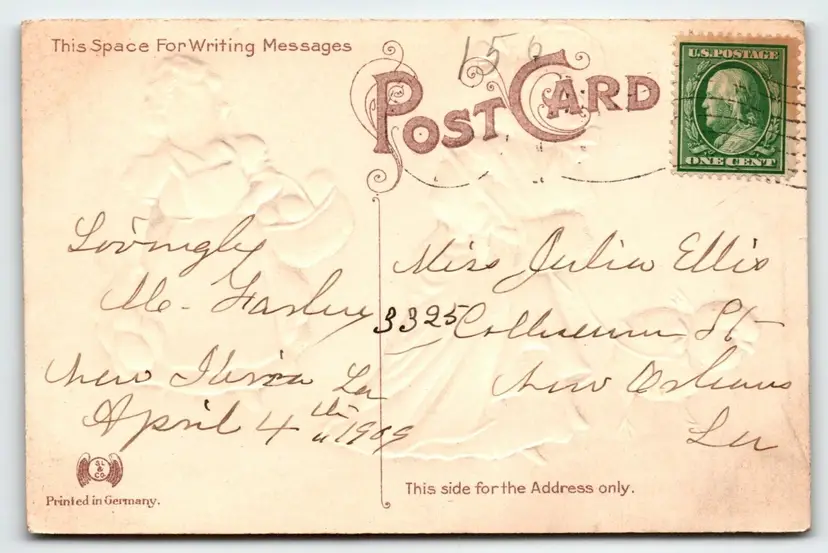 This Space For Writing Messages
156
POST CARD
U.S. POSTAGE
ONE CENT
Lovingly
Mc-Farlue
New Iberia La
April 4th 1909
Miss Julia Ellis
3325 Colliseum St
New Orleans
La
SL & Co
Printed in Germany.
This side for the Address only.